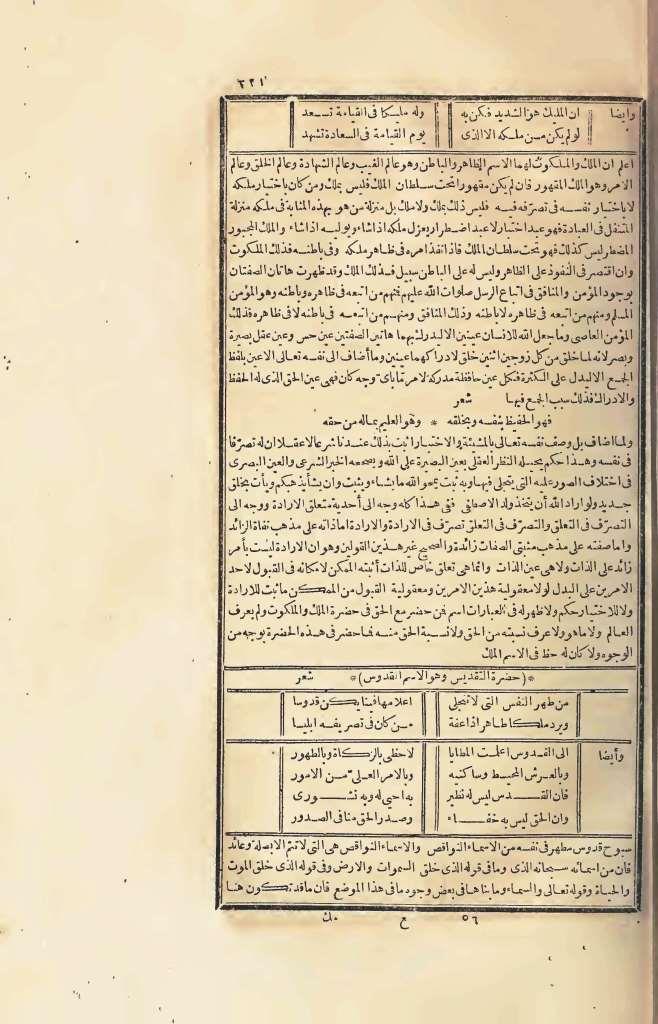 ٢٢١
وأيضا ان المليك هو الشديد فكن به وله مليكا في القيامة تسعد
لو لم يكن من ملكه الا الذي يوم القيامة في السعادة تشهد
اعلم ان الملك والملكوت لهما الاسم الظاهر والباطن وهو عالم الغيب وعالم الشهادة وعالم الخلق وعالم
الامر وهو الملك المقهور فان لم يكن مقهورا تحت سلطان الملك فليس بملك ومن كان باختيار ملكه
لا باختيار نفسه في تصرفه فيه فليس ذلك بملك ولا ملك بل منزلة من هو بهذه المثابة في ملكه منزلة
المتنفل في العبادة فهو عبد اختيار لا عبد اضطرار يعزل ملكه اذا شاء ويوليه اذا شاء والملك المجبور
المضطر ليس كذلك فهو تحت سلطان الملك فاذا نفذ امره في ظاهر ملكه وفي باطنه فذلك الملكوت
وان اقتصر في النفوذ على الظاهر وليس له على الباطن سبيل فذلك الملك وقد ظهرت هاتان الصفتان
بوجود المؤمن والمنافق في اتباع الرسل صلوات الله عليهم فمنهم من اتبعه في ظاهره وباطنه وهو المؤمن
المسلم ومنهم من اتبعه في ظاهره لا باطنه وذلك المنافق ومنهم من اتبعه في باطنه لا في ظاهره فذلك
المؤمن العاصي وما جعل الله للانسان عينين الا ليدرك بهما هاتين الصفتين عين حس وعين عقل بصيرة
وبصر لانه لما خلق من كل زوجين اثنين خلق لادراكهما عينين وما أضاف الى نفسه تعالى الاعين بلفظ
الجمع الا ليدل على الكثرة فكل عين حافظة مدركة لامر ما بأى وجه كان فهى عين الحق الذي له الحفظ
والادراك فذلك سبب الجمع فيها شعر
فهو الحفيظ بنفسه وبخلقه * وهو العليم بماله من حقه
ولما اضاف بل وصف نفسه تعالى بالمشيئة والاختيار ثبت بذلك عندنا شرعا لا عقلا ان له تصرفا
في نفسه وهذا حكم يحيله النظر العقلي بعين البصيرة على الله ويصححه الخبر الشرعي والعين البصرى
في اختلاف الصور عليه التي يتجلى فيها وبه ثبت يمحو الله ما يشاء ويثبت وان يشأ يذهبكم ويأت بخلق
جديد ولو اراد الله أن يتخذ ولدا لاصطفى ففي هذا كله وجه الى أحدية متعلق الارادة ووجه الى
التصرف في التعلق والتصرف في التعلق تصرف في الارادة والارادة اما ذاته على مذهب نفاة الزائد
واما صفته على مذهب مثبتي الصفات زائدة والصحيح غير هذين القولين وهو ان الارادة ليست بأمر
زائد على الذات ولا هي عين الذات وانما هي تعلق خاص للذات أثبته الممكن لامكانه في القبول لاحد
الامرين على البدل لولا معقولية هذين الامرين ومعقولية القبول من الممكن ما ثبت للارادة
ولا للاختيار حكم ولا ظهر له في العبارات اسم فمن حضر مع الحق في حضرة الملك والملكوت ولم يعرف
العالم ولا ما هو ولا عرف نسبته من الحق ولا نسبة الحق منه فما حضر في هذه الحضرة بوجه من
الوجوه ولا كان له حظ في الاسم الملك
*(حضرة التقديس وهو الاسم القدوس)* شعر
من طهر النفس التي لا تنجلي اعلامها فينا يكن قدوسا
ويرد ملكا طاهرا ذا عفة من كان في تصريفه ابليسا
وأيضا الى القدوس اعملت المطايا لاحظى بالزكاة وبالطهور
وبالعرش المحيط وساكنيه وبالامر العلي من الامور
فان القدس ليس له نظير به احيي له وبه نشورى
وان الحق ليس به خفاء وصدر الحق منا في الصدور
سبوح قدوس مطهر في نفسه من الاسماء النواقص والاسماء النواقص هي التي لا تتم الا بصلة وعائد
فان من اسمائه سبحانه الذي وما في قوله الذي خلق السموات والارض وفي قوله الذي خلق الموت
والحياة وقوله تعالى والسماء وما بناها في بعض وجوه ما في هذا الموضع فان ما قد تكون هنا
٥٦ ح مك